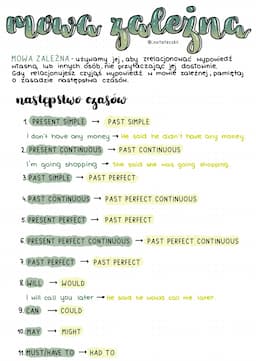 mowa zależna
MOWA ZALEŻNA - używamy jej, aby zrelacjonować wypowiedź
własną lub innych osób, nie przytaczając jej dosłownie.
Gdy relacjonujesz czyjąś wypowiedź w mowie zależnej, pamiętaj
o zasadzie następstwa czasów.
następstwo czasów
1. PRESENT SIMPLE → PAST SIMPLE
I don't have any money → He said he didn't have any money.
2. PRESENT CONTINUOUS → PAST CONTINUOUS
I'm going shopping → She said she was going shopping.
3. PAST SIMPLE → PAST PERFECT
4. PAST CONTINUOUS → PAST PERFECT CONTINUOUS
5. PRESENT PERFECT → PAST PERFECT
6. PRESENT PERFECT CONTINUOUS → PAST PERFECT CONTINUOUS
7. PAST PERFECT → PAST PERFECT
8. WILL → WOULD
I will call you later → He said he would call me later.
9. CAN → COULD
10. MAY → MIGHT
11. MUST/HAVE TO → HAD TO